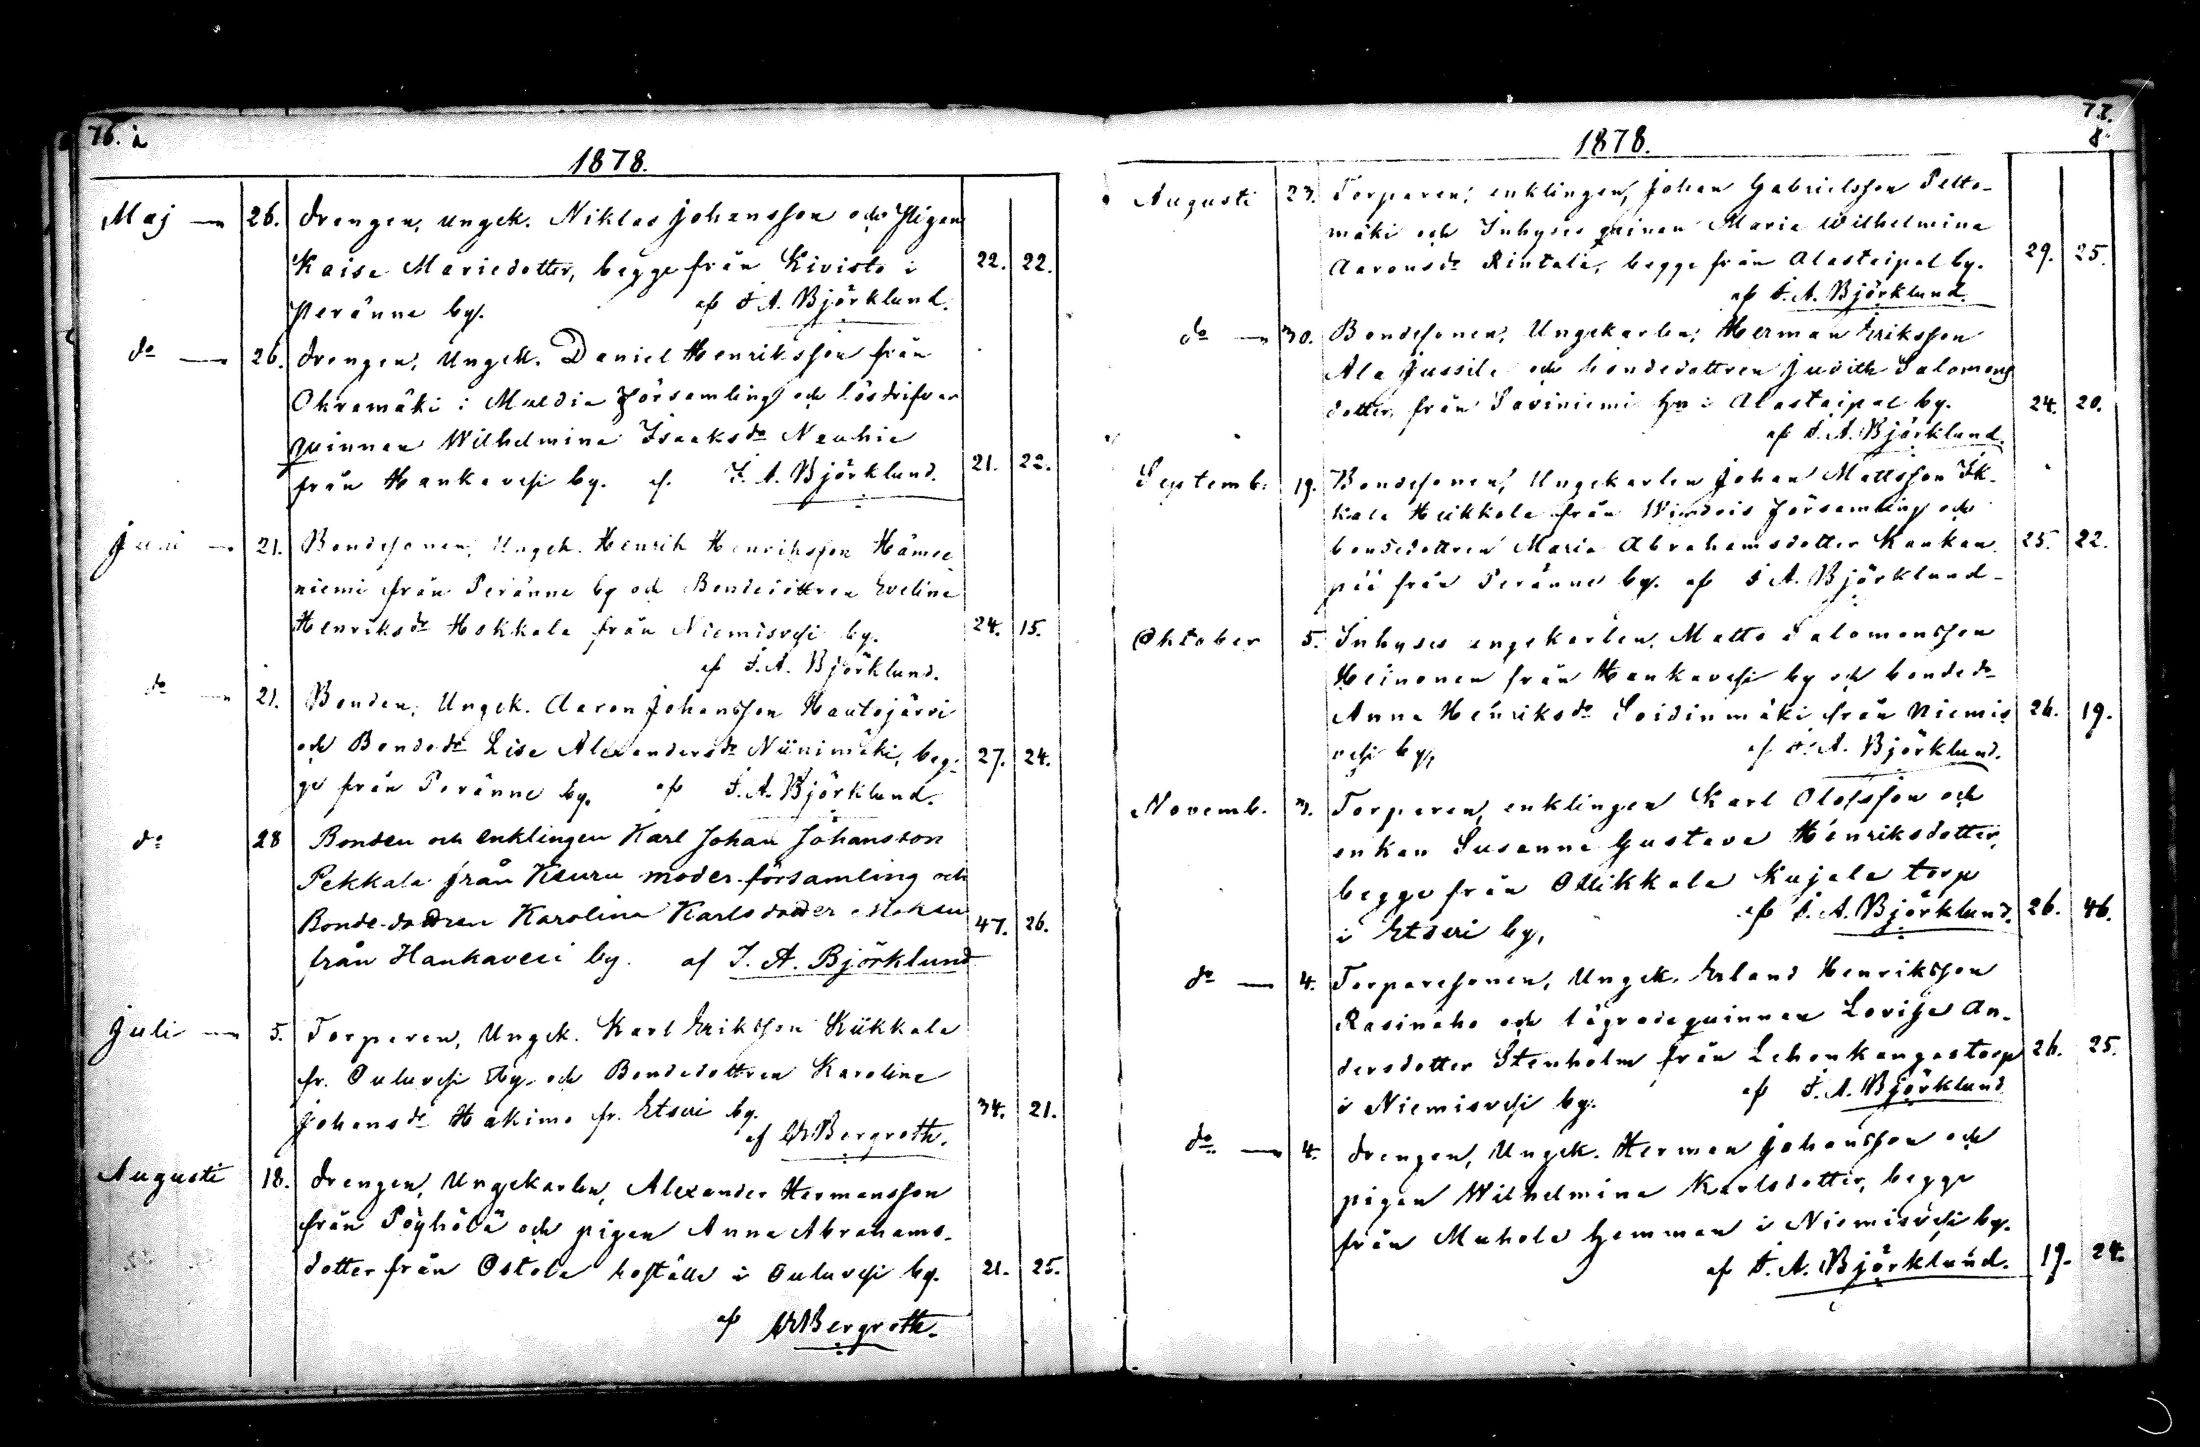 76. a
1878.
Maj — 26. Drengen, ungek. Niklas Johansson och Pigan
Kaisa Mariedotter, begge från Kivistö i 22. 22.
Peränne by. af I. A. Björklund.
do — 26. Drengen, Ungek. Daniel Henriksson från
Ohramäki i Muldia Församling och lösdrifvar
qvinnan Wilhelmina Isaaksdr Nauhia
från Hankavesi by. af I. A. Björklund. 21. 22.
Juni — 21. Bondesonen, Ungek. Henrik Henriksson Hämee
niemi från Peränne by och Bondedottren Evelina
Henriksdr Hokkala från Niemisvesi by. 24. 15.
af I. A. Björklund.
do — 21. Bonden, Ungek. Aaron Johansson Hautojärvi
och Bondedr Lisa Alexandersdr Niinimäki, beg- 27. 24.
ge från Peränne by. af I. A. Björklund.
do 28 Bonden och enklingen Karl Johan Johansson
Pekkala från Keuru moder-församling och
Bonde-dottren Karolina Karlsdotter 47. 26.
från Hankavesi by. af I. A. Björklund
Juli — 5. Torparen, Ungek. Karl Eriksson Kiikkala
fr. Ouluvesi by och Bondedottren Karolina
Johansdr Hakimo fr. Etseri by. 34. 21.
af Bergroth.
Augusti 18. Drengen, Ungekarlen, Alexander Hermansson
från Pöyhölä och pigan Anna Abrahams-
dotter från Ostola boställe i Ouluvesi by. 21. 25.
af Bergroth.
77.
8
1878.
Augusti 23. Torparen, enklingen, Johan Gabrielsson Pelto-
mäki och Inhyses qvinnan Maria Wilhelmina
Aaronsdr Rintala, begge från Alastaipal by. 29. 25.
af I. A. Björklund.
do — 30. Bondesonen, Ungekarlen, Herman Eriksson
Ala Jussila och bondedottren Judith Salomons
dotter, från Saviniemi hn i Alastaipal by. 24. 20.
af I. A. Björklund.
Septemb. 19. Bondesonen, Ungekarlen Johan Mattsson Ik-
kala Heikkola från Wirdois Församling och
bondedottren Maria Abrahamsdotter Kankan- 25. 22.
pää från Peränne by. af I. A. Björklund
Oktober 5. Inhyses ungekarlen, Matts Salomonsson
Heinonen från Hankavesi by och bondedr
Anna Henriksdr Soidinmäki från Niemis 26. 19.
vesi by, af I. A. Björklund.
Novemb. 3. Torparen, enklingen Karl Olofsson och
enkan Susanna Gustava Henriksdotter,
begge från Ollikkala Kujala torp
i Etseri by, af I. A. Björklund. 26. 46.
do — 4. Torparesonen, Ungek. Erland Henriksson
Rasinaho och lägradeqvinnan Lovisa An-
dersdotter Stenholm från Lehonkangastorp 26. 25.
i Niemisvesi by. af I. A. Björklund
do — 4. Drengen, Ungek. Herman Johansson och
pigan Wilhelmina Karlsdotter, begge
från Muhola hemman i Niemisvesi by.
af I. A. Björklund. 19. 24.